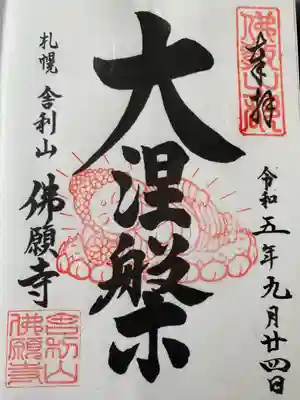 奉拝
令和五年九月廿四日
大涅槃
札幌 舎利山
佛願寺
舎利山
佛願寺